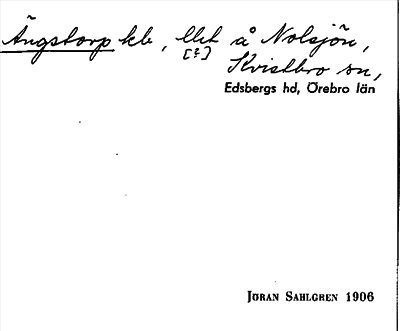 Ängstorp kb, llet å Nolsjön,
[?]
Kvistbro sn,
Edsbergs hd, Örebro län
JÖRAN SAHLGREN 1906